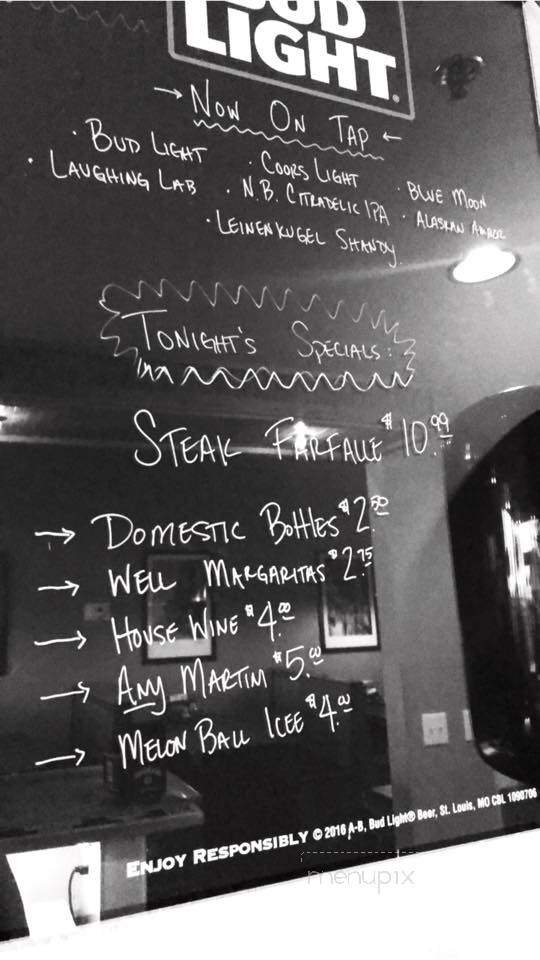 BUD
LIGHT.
→ NOW ON TAP ←
· BUD LIGHT · COORS LIGHT · BLUE MOON
· LAUGHING LAB · N.B. CITRADELIC IPA · ALASKAN AMBER
· LEINENKUGEL SHANDY
TONIGHT'S SPECIALS:
STEAK FARFALLE $10.99
→ DOMESTIC BOTTLES $2.50
→ WELL MARGARITAS $2.75
→ HOUSE WINE $4.00
→ ANY MARTINI $5.00
→ MELON BALL ICEE $4.00
ENJOY RESPONSIBLY © 2016 A-B, Bud Light® Beer, St. Louis, MO CBL 1090706
menupix